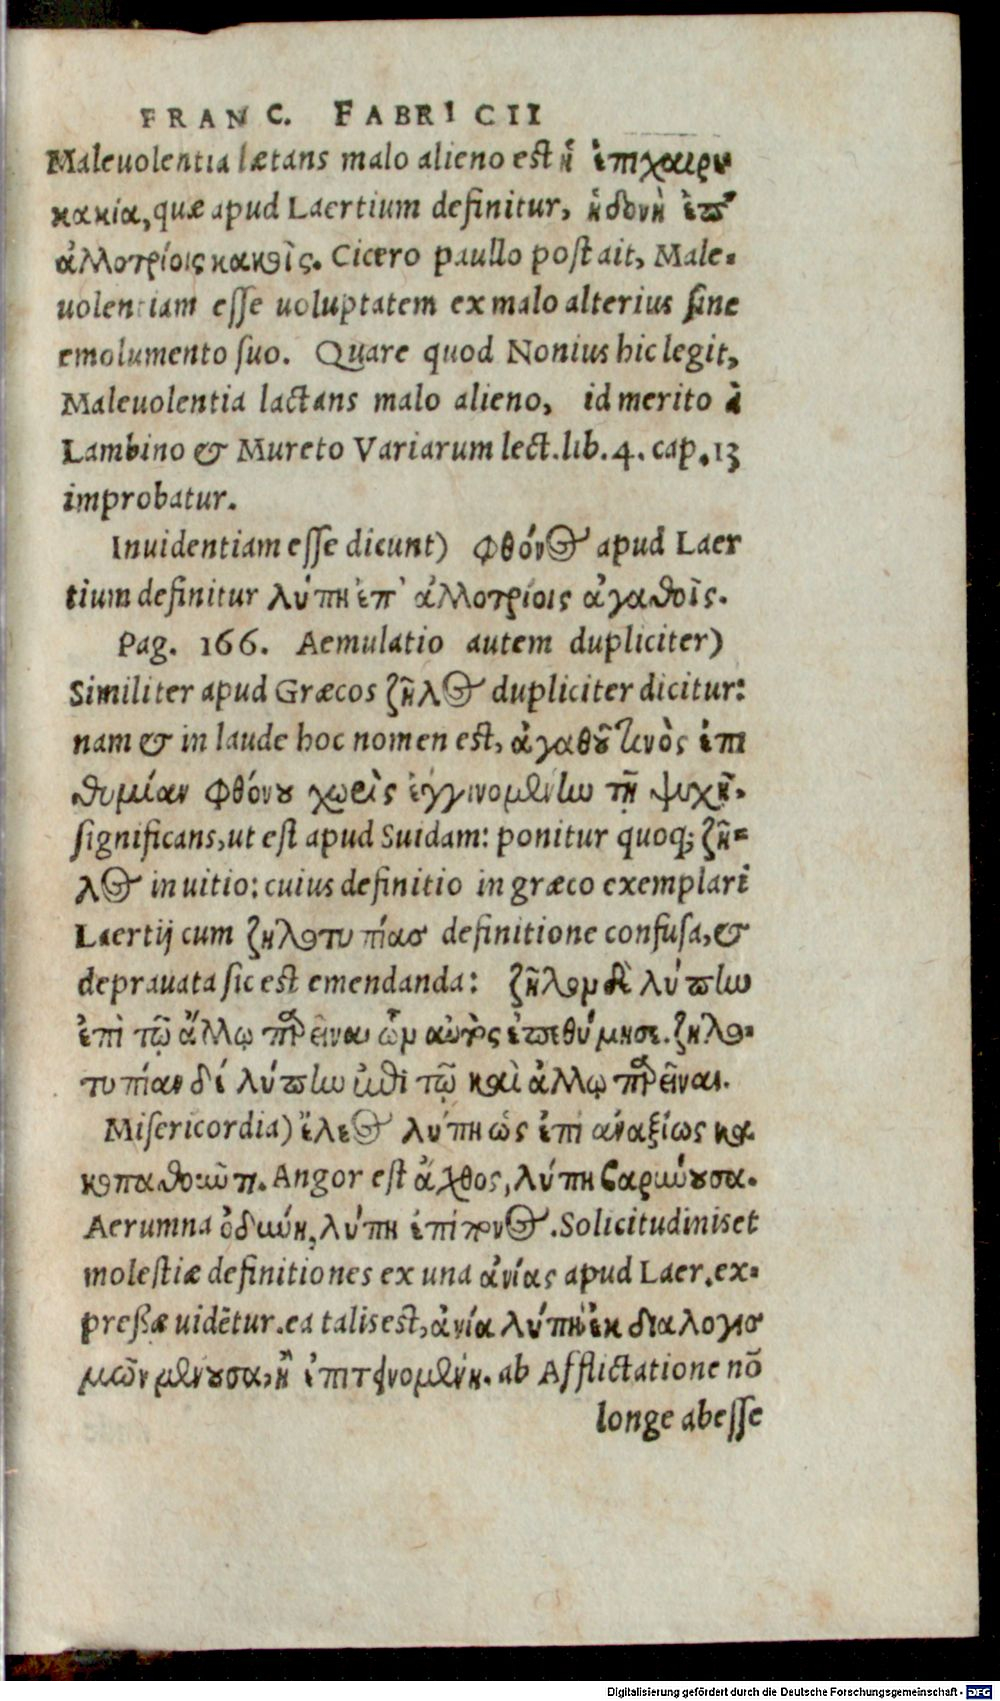 FRANC. FABRICII
Maleuolentia lætans malo alieno est ἡ ἐπιχαιρε
κακία, quæ apud Laertium definitur, ἡδονὴ ἐπ'
ἀλλοτρίοις κακοῖς. Cicero paullo post ait, Male-
uolentiam esse uoluptatem ex malo alterius sine
emolumento suo. Quare quod Nonius hic legit,
Maleuolentia lactans malo alieno, id merito à
Lambino & Mureto Variarum lect. lib. 4. cap. 13
improbatur.
Inuidentiam esse dicunt) φθόνος apud Laer
tium definitur λύπη ἐπ' ἀλλοτρίοις ἀγαθοῖς.
Pag. 166. Aemulatio autem dupliciter)
Similiter apud Græcos ζῆλος dupliciter dicitur:
nam & in laude hoc nomen est, ἀγαθοῦ τινὸς ἐπι
θυμίαν φθόνου χωρὶς ἐγγινομένην τῇ ψυχῇ.
significans, ut est apud Suidam: ponitur quoq; ζῆ-
λος in uitio: cuius definitio in græco exemplari
Laertij cum ζηλοτυπίας definitione confusa, &
deprauata sic est emendanda: ζῆλον δὲ λύπην
ἐπὶ τῷ ἄλλῳ παρεῖναι ὧν αὐτὸς ἐπεθύμησε. ζηλο-
τυπίαν δὲ λύπην ἐπὶ τῷ καὶ ἄλλῳ παρεῖναι.
Misericordia) ἔλεος λύπη ὡς ἐπὶ ἀναξίως κα
κοπαθοῦντι. Angor est ἄχθος, λύπη βαρύνουσα.
Aerumna ὀδύνη, λύπη ἐπίπονος. Solicitudinis et
molestiæ definitiones ex una ἀνίας apud Laer. ex-
pressæ uidētur. ea talis est, ἀνία λύπη ἐκ διαλογισ
μῶν μένουσα, ἢ ἐπιτεινομένη. ab Afflictatione nō
longe abesse
Digitalisierung gefördert durch die Deutsche Forschungsgemeinschaft - DFG